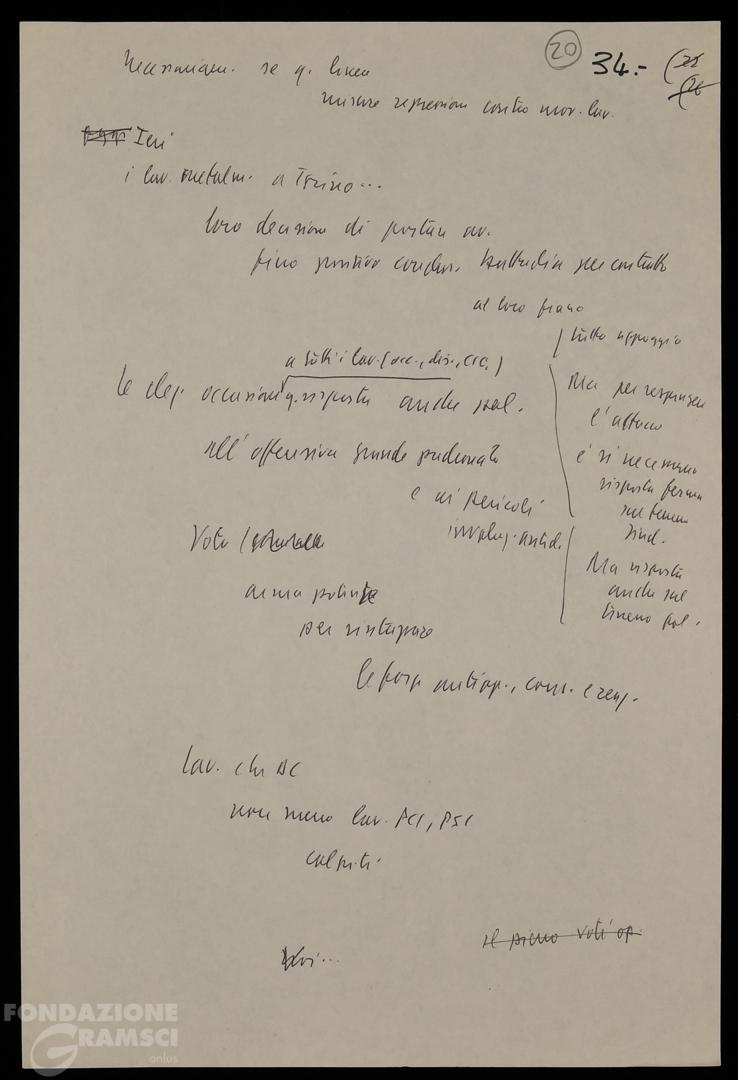 20 34.-
Necessariam. se q. linea
misure repressione contro mov. lav.
Ieri
i lav. metalm. a Torino...
loro decisione di portare av.
fino positiva conclus. battaglia per contratto
al loro fianco
tutto appoggio
a tutti i lav. (occ., dis., CIG)
le elez. occasione q. risposta anche pol.
all'offensiva grande padronato
e ai pericoli
involuz. antid.
Ma per respingere
l'attacco
è sì necessaria
risposta ferma
sul terreno
sind.
Ma risposta
anche sul
terreno pol.
Voto
arma potente
per rintuzzare
le forze antiop., cons. e reaz.
lav. che DC
non meno lav. PCI, PSI
colpiti
Voi...
il pieno voti op.
FONDAZIONE
GRAMSCI
onlus